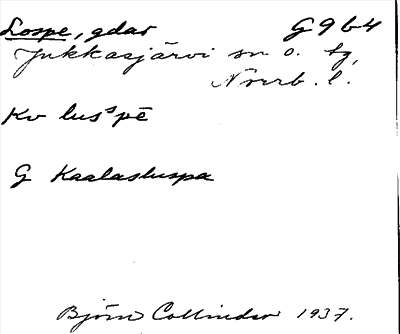 Lospe, gdar G9b4
Jukkasjärvi sn o. tg,
Norrb. l.
Kv lusˢpē
G Kaalasluspa
Björn Collinder 1937.